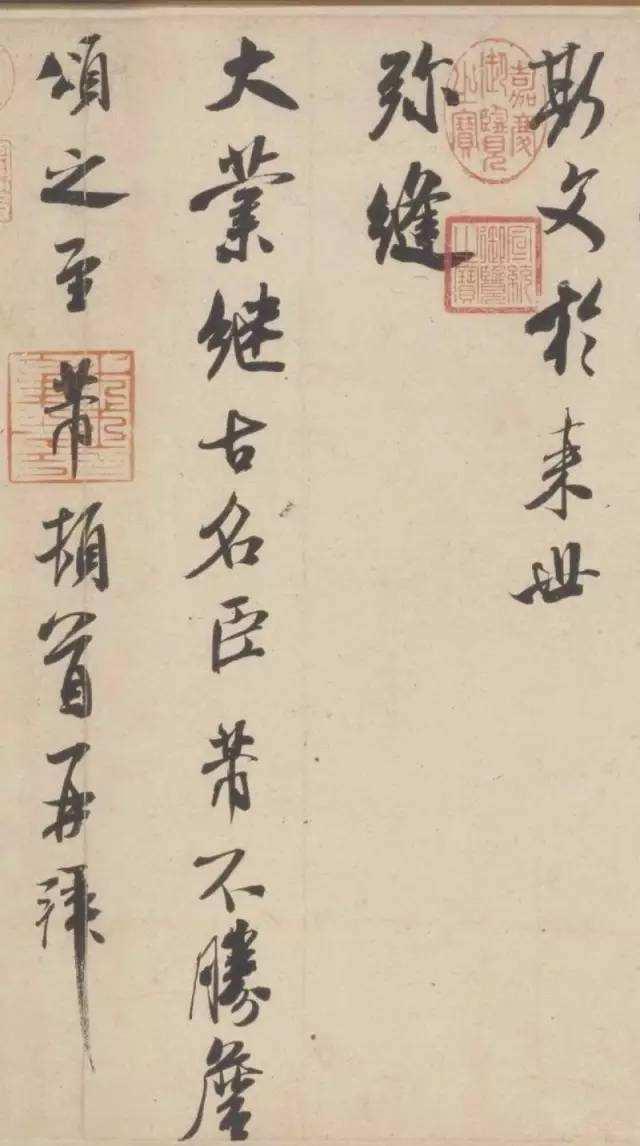 斯文於来世
弥縫
大業継古名臣芾不勝詹
頌之至芾頓首再拜
嘉慶御覽之寶
宣統御覽之寶